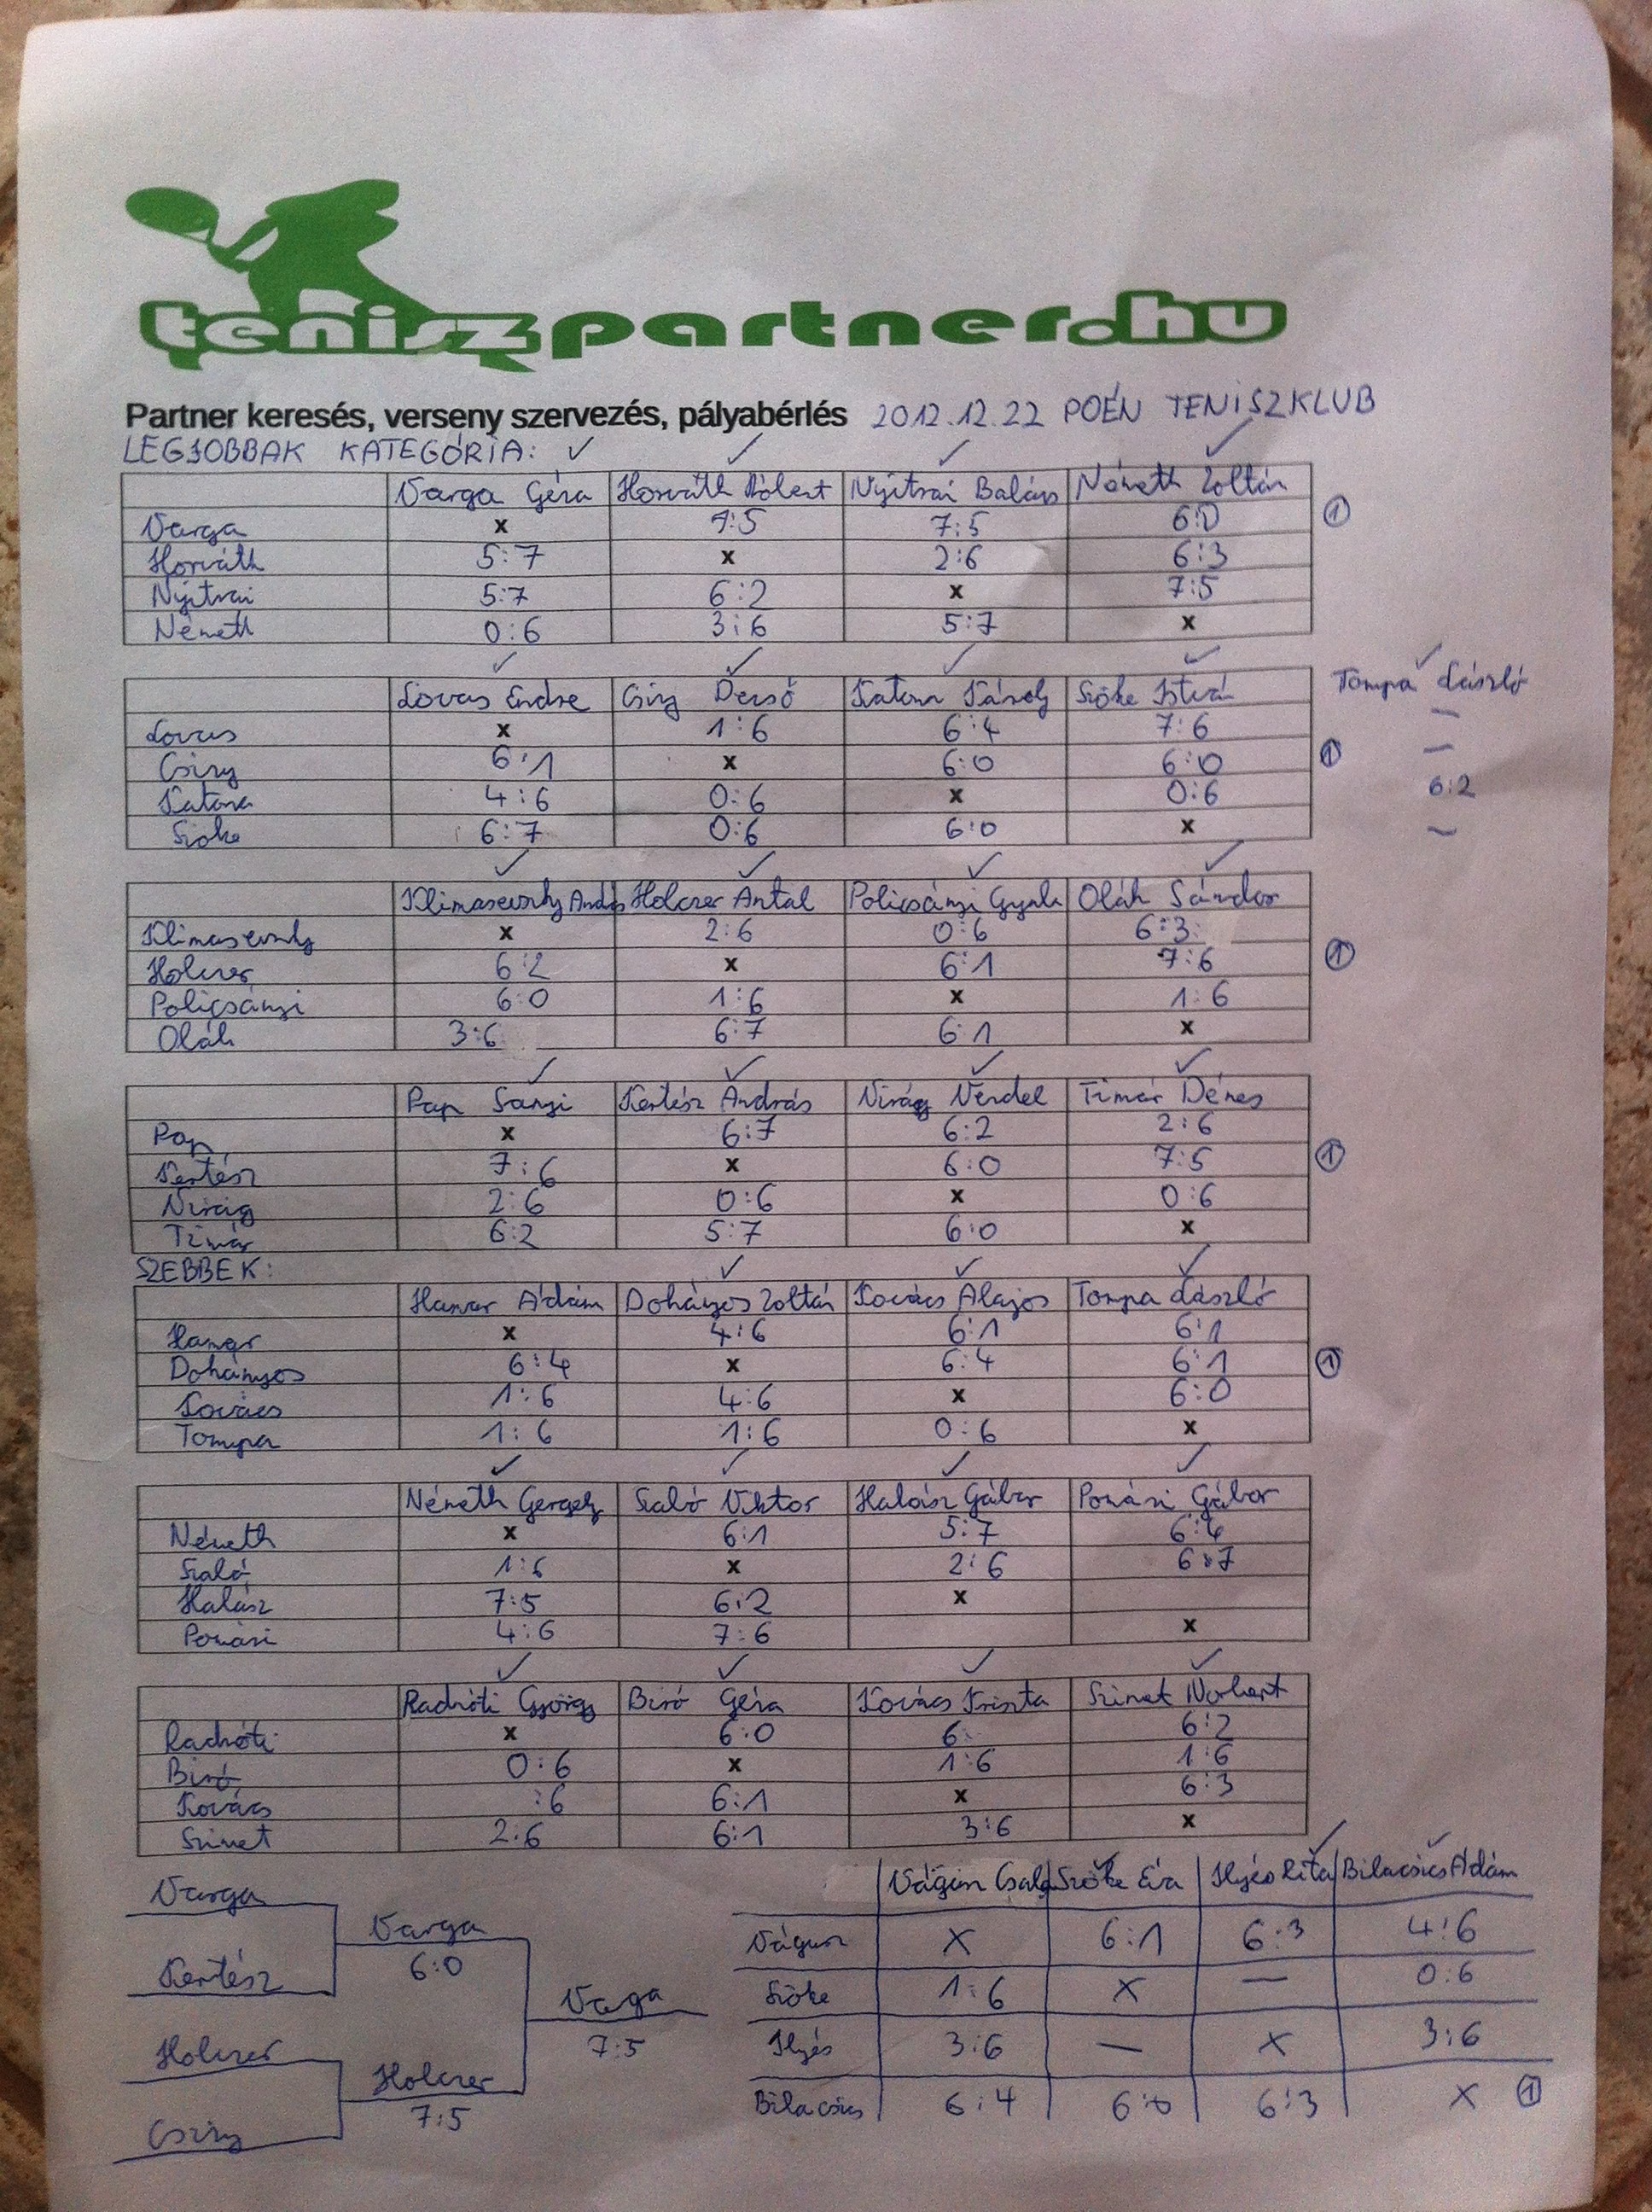 teniszpartner.hu
Partner keresés, verseny szervezés, pályabérlés 2012.12.22 POÉN TENISZKLUB
LEGJOBBAK KATEGÓRIA: ✓ ✓ ✓ ✓
Varga Géza Horváth Róbert Nyitrai Balázs Németh Zoltán
Varga x 7:5 7:5 6:0 ①
Horváth 5:7 x 2:6 6:3
Nyitrai 5:7 6:2 x 7:5
Németh 0:6 3:6 5:7 x
✓ ✓ ✓ ✓ ✓
Lovas Endre Csizy Dezső Katona Károly Szőke István Tompa László
Lovas x 1:6 6:4 7:6 —
Csizy 6:1 x 6:0 6:0 ① —
Katona 4:6 0:6 x 0:6 6:2
Szőke 6:7 0:6 6:0 x —
✓ ✓ ✓ ✓
Klimasevszky András Holczer Antal Policsányi Gyula Oláh Sándor
Klimasevszky x 2:6 0:6 6:3
Holczer 6:2 x 6:1 7:6 ①
Policsányi 6:0 1:6 x 1:6
Oláh 3:6 6:7 6:1 x
✓ ✓ ✓ ✓
Pap Sanyi Kertész András Virág Vendel Timár Dénes
Pap x 6:7 6:2 2:6
Kertész 7:6 x 6:0 7:5 ①
Virág 2:6 0:6 x 0:6
Timár 6:2 5:7 6:0 x
SZEBBEK: ✓ ✓ ✓
Hamar Ádám Dohányos Zoltán Kovács Alajos Tompa László
Hamar x 4:6 6:1 6:1
Dohányos 6:4 x 6:4 6:1 ①
Kovács 1:6 4:6 x 6:0
Tompa 1:6 1:6 0:6 x
✓ ✓ ✓ ✓
Németh Gergely Szabó Viktor Halász Gábor Gábor
Németh x 6:1 5:7 6:4
Szabó 1:6 x 2:6 6:7
Halász 7:5 6:2 x
4:6 7:6 x
✓ ✓ ✓ ✓
Radnóti György Biró Géza Kovács Kriszta Szinet Norbert
Radnóti x 6:0 6: 6:2
Biró 0:6 x 1:6 1:6
Kovács :6 6:1 x 6:3
Szinet 2:6 6:1 3:6 x
Vágusz Csaba Szőke Éva Ilyés Rita Bilacsics Ádám
Vágusz X 6:1 6:3 4:6
Szőke 1:6 X — 0:6
Ilyés 3:6 — X 3:6
Bilacsics 6:4 6:0 6:3 X ①
Varga
Varga
6:0
Kertész
Varga
7:5
Holczer
Holczer
7:5
Csizy